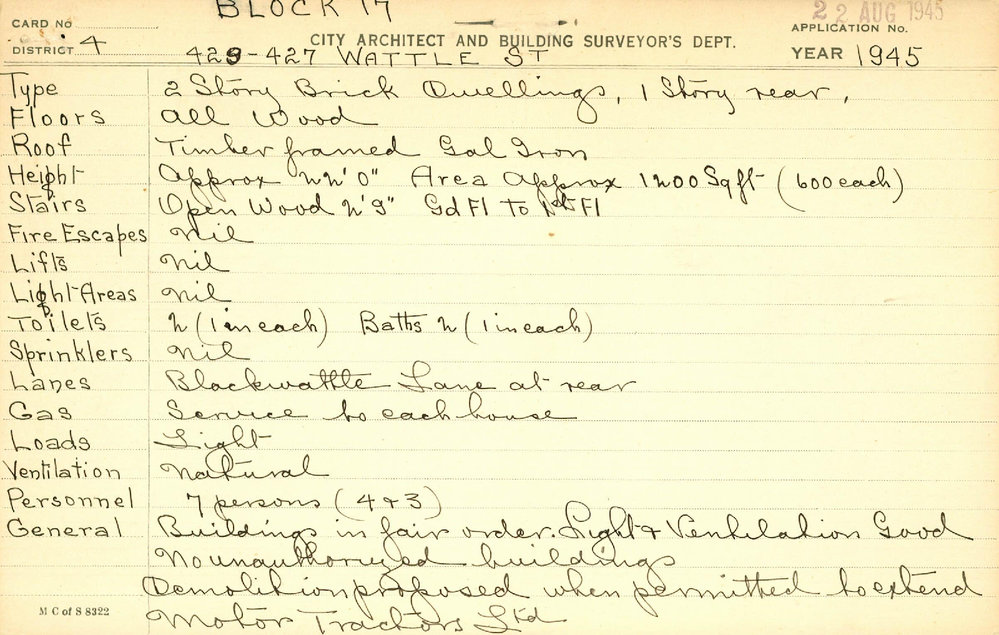 BLOCK 17
22 AUG 1945
CARD No
APPLICATION No.
DISTRICT 4
CITY ARCHITECT AND BUILDING SURVEYOR'S DEPT.
429-427 WATTLE ST
YEAR 1945
Type 2 Story Brick Dwellings, 1 Story rear,
Floors All Wood
Roof Timber framed Gal Iron
Height Approx 22'0" Area Approx 1200 Sq ft (600 each)
Stairs Open Wood 2'9" Gd Fl To 1st Fl
Fire Escapes Nil
Lifts Nil
Light Areas Nil
Toilets 2 (1 in each) Baths 2 (1 in each)
Sprinklers Nil
Lanes Blackwattle Lane at rear
Gas Service to each house
Loads Light
Ventilation Natural
Personnel 7 persons (4 & 3)
General Buildings in fair order. Light & Ventilation Good
No unauthorized buildings
Demolition proposed when permitted to extend
Motor Tractors Ltd
M C of S 8322